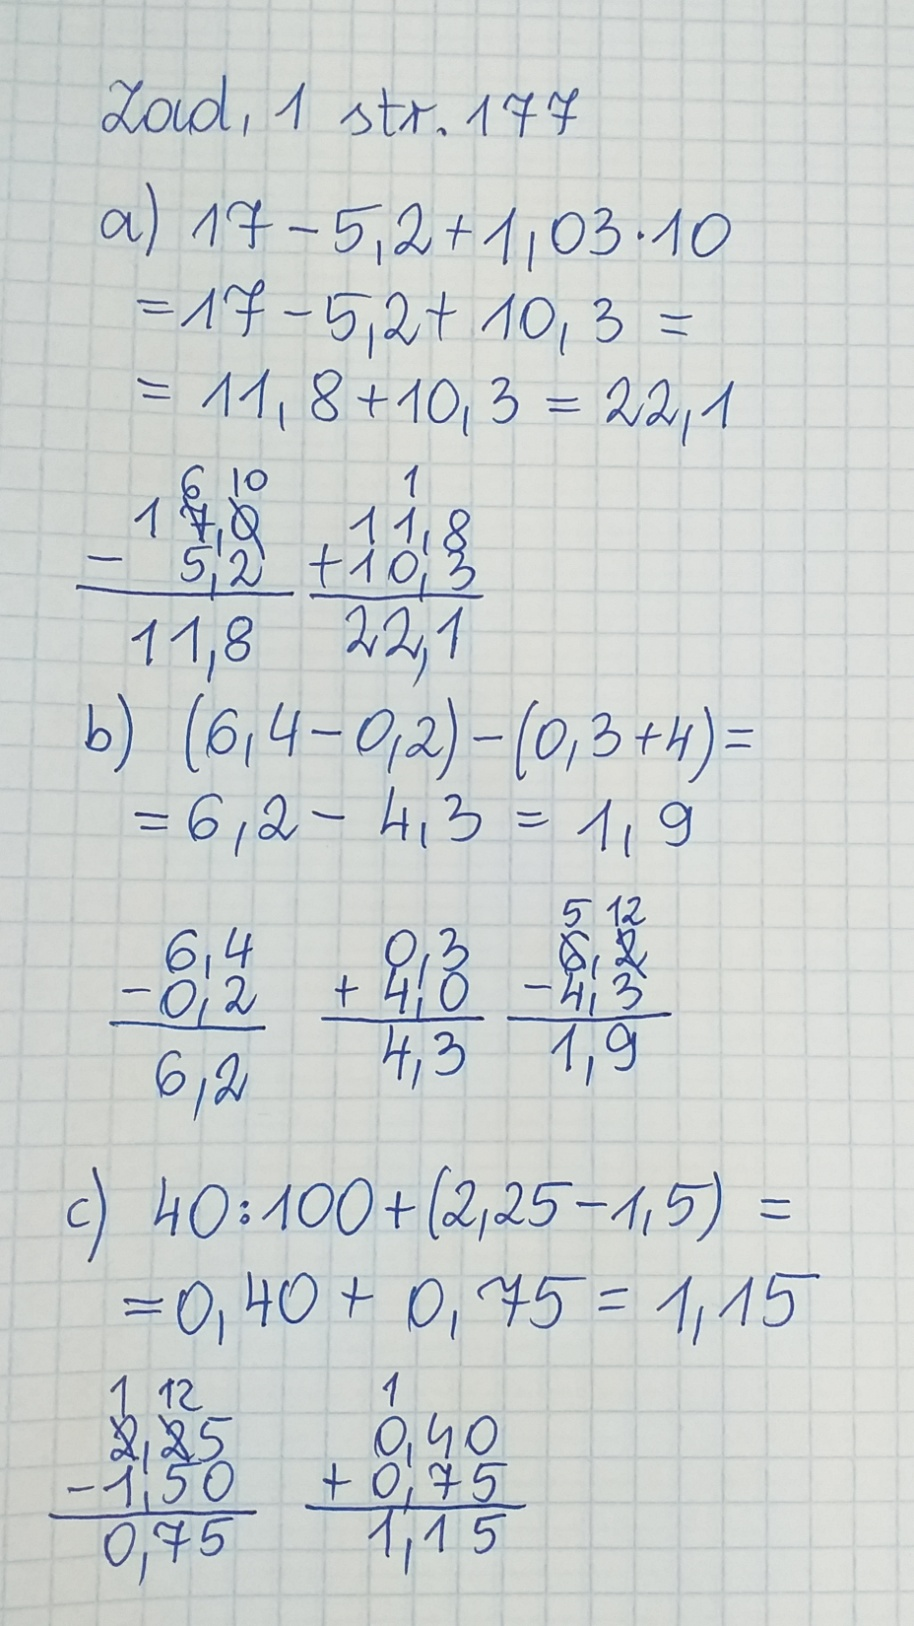 Zad. 1 str. 177
a) 17 - 5,2 + 1,03 · 10
= 17 - 5,2 + 10,3 =
= 11,8 + 10,3 = 22,1
6 10 1
17,0 11,8
- 5,2 + 10,3
11,8 22,1
b) (6,4 - 0,2) - (0,3 + 4) =
= 6,2 - 4,3 = 1,9
5 12
6,4 0,3 6,2
- 0,2 + 4,0 - 4,3
6,2 4,3 1,9
c) 40 : 100 + (2,25 - 1,5) =
= 0,40 + 0,75 = 1,15
1 12 1
2,25 0,40
- 1,50 + 0,75
0,75 1,15